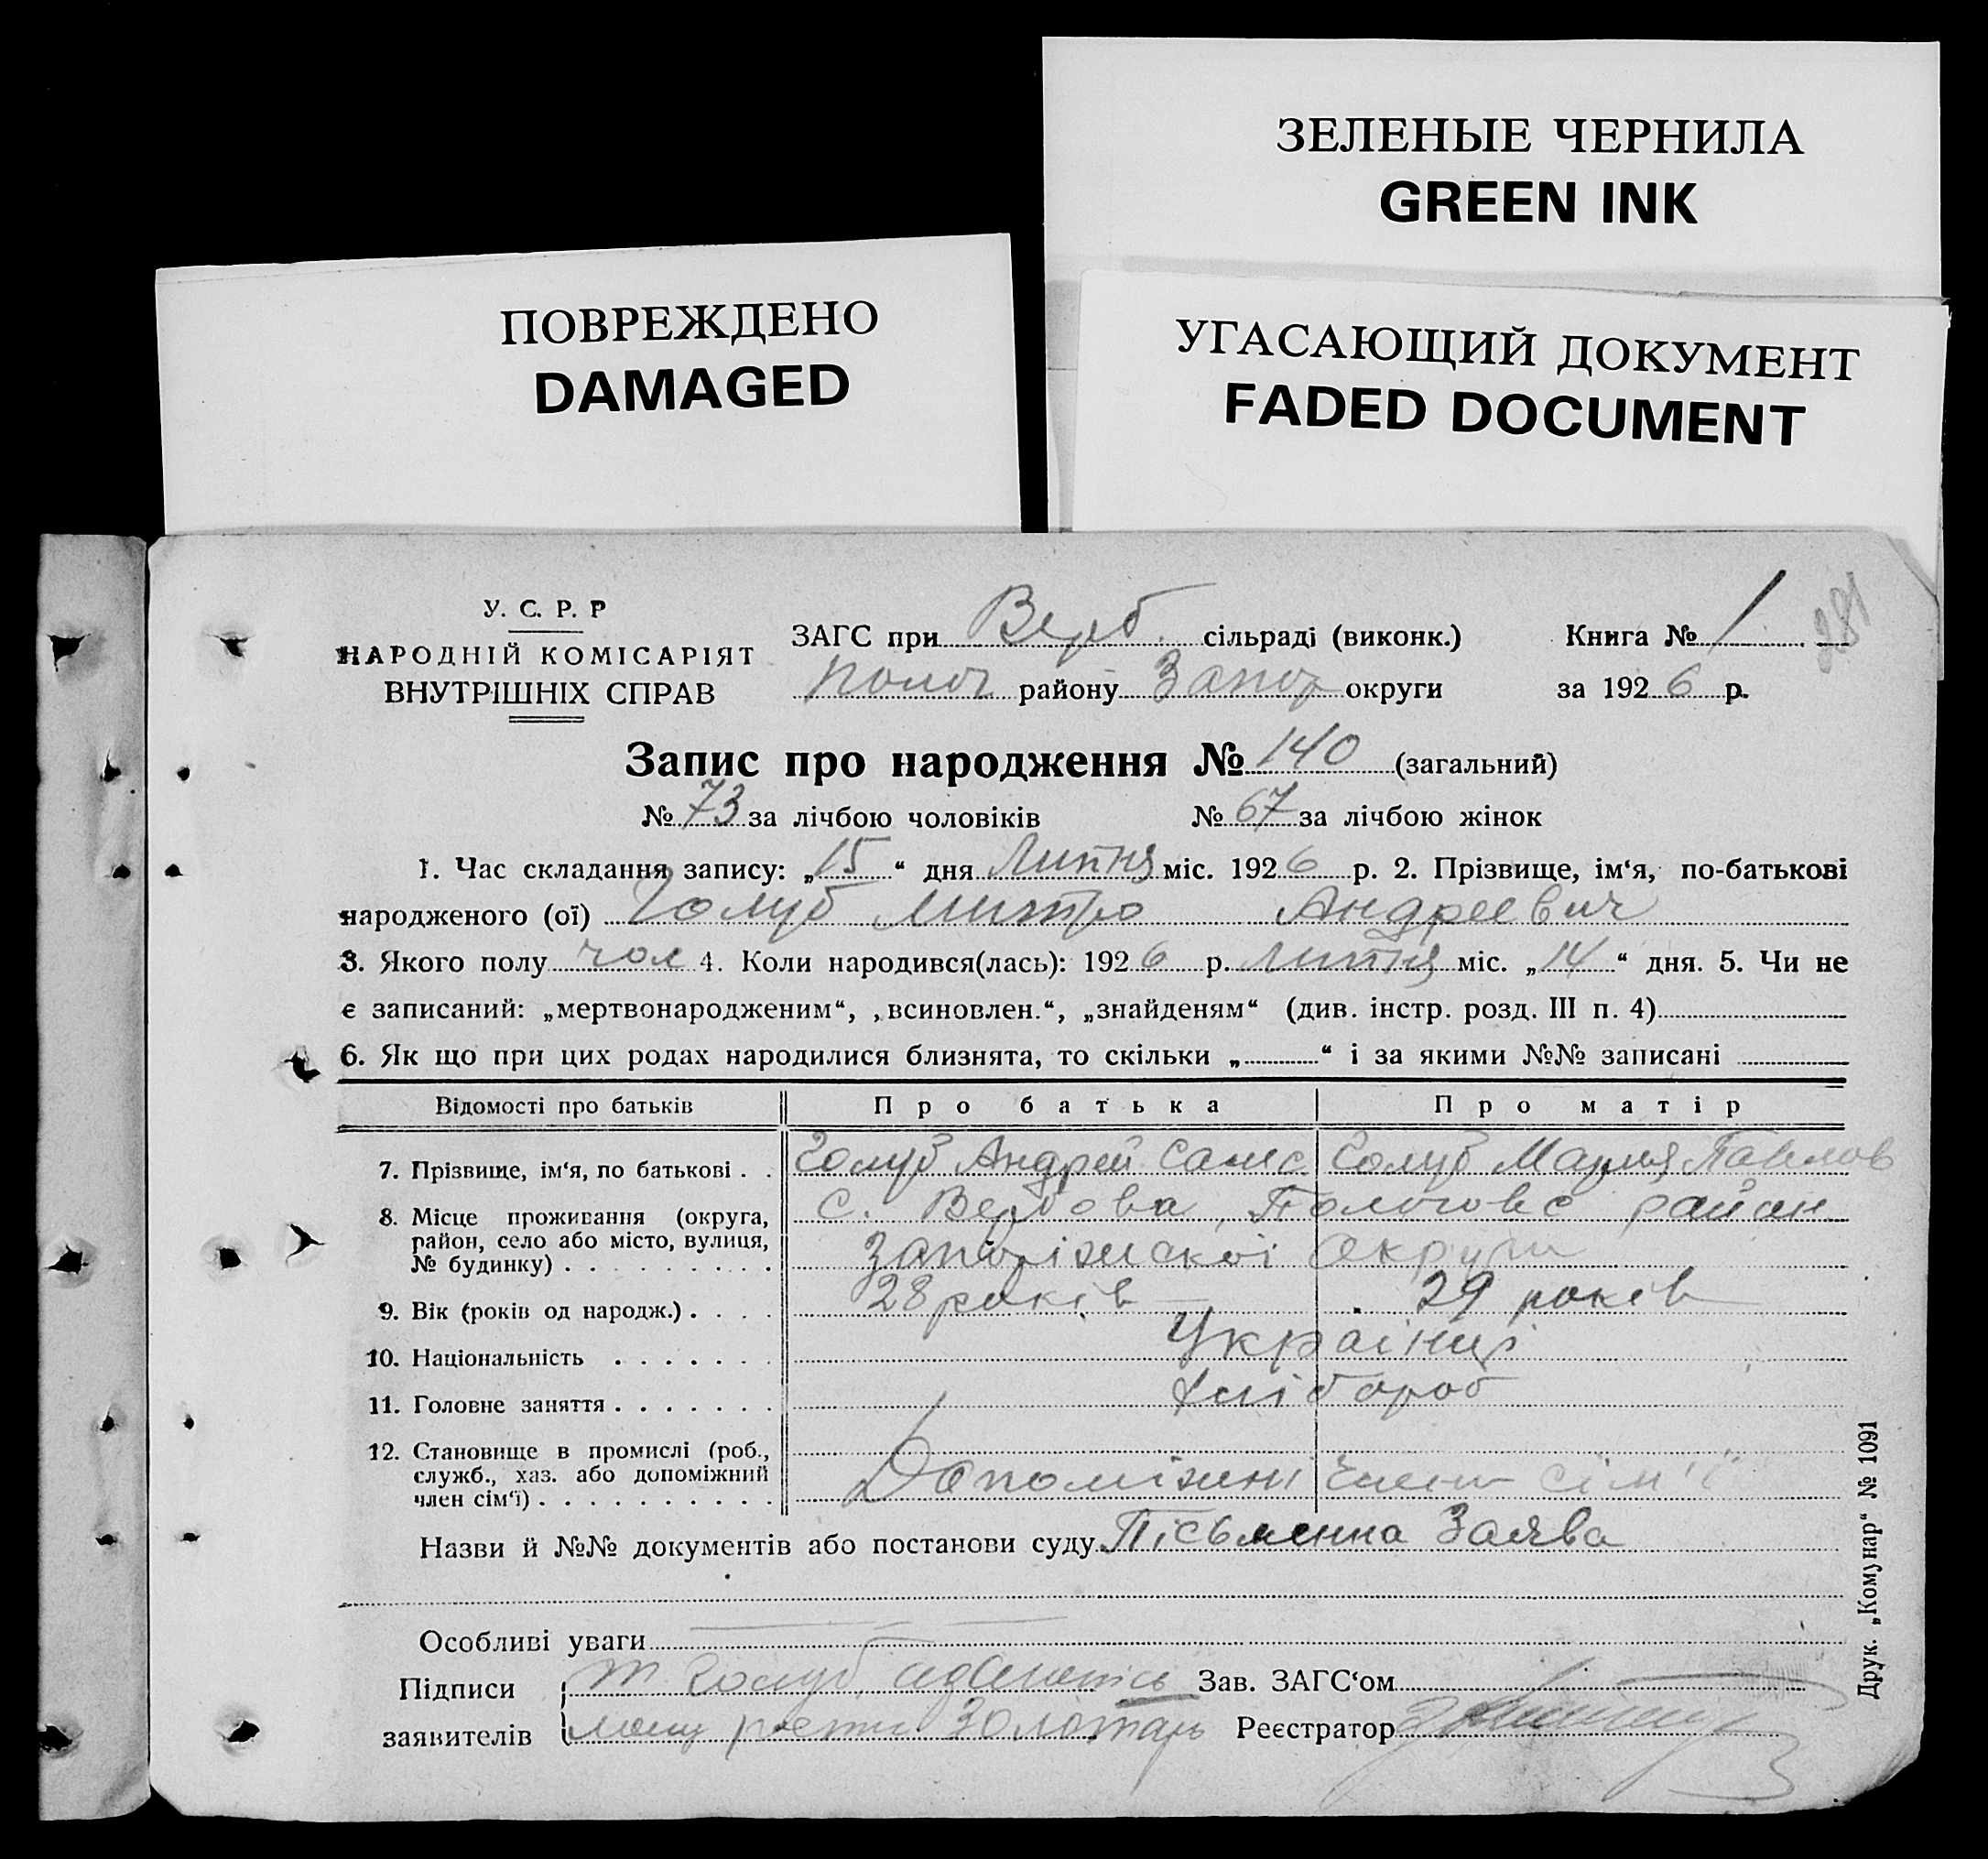 ЗЕЛЕНЫЕ ЧЕРНИЛА
GREEN INK
ПОВРЕЖДЕНО
DAMAGED
УГАСАЮЩИЙ ДОКУМЕНТ
FADED DOCUMENT
281
У. С. Р. Р
НАРОДНІЙ КОМІСАРІЯТ
ВНУТРІШНІХ СПРАВ
ЗАГС при Верб. сільраді (виконк.) Книга № 1
Полог району Запор округи за 1926 р.
Запис про народження № 140 (загальний)
№ 73 за лічбою чоловіків № 67 за лічбою жінок
1. Час складання запису: „15“ дня Липня міс. 1926 р. 2. Прізвище, ім‘я, по-батькові
народженого (ої) Голуб Митро Андреевич
3. Якого полу чол 4. Коли народився(лась): 1926 р. Липня міс. „14“ дня. 5. Чи не
є записаний: „мертвонародженим“, „всиновлен.“, „знайденям“ (див. інстр. розд. III п. 4)
6. Як що при цих родах народилися близнята, то скільки „ “ і за якими №№ записані
Відомості про батьків Про батька Про матір
7. Прізвище, ім‘я, по батькові . . Голуб Андрей Голуб Мария Павлов
8. Місце проживання (округа,
район, село або місто, вулиця,
№ будинку)
с. Вербова, район
Запоріжскої округи
9. Вік (років од народж.) . . . . 28 років 29 років
10. Національність Українці
11. Головне заняття Хлібороб
12. Становище в промислі (роб.,
служб., хаз. або допоміжний
член сім‘ї)
Допоміжні члени сім'ї
Назви й №№ документів або постанови суду Пісьменна Заява
Особливі уваги
Підписи Голуб Зав. ЗАГС‘ом
заявителів Золотарь Реєстратор
Друк. „Комунар“ № 1091